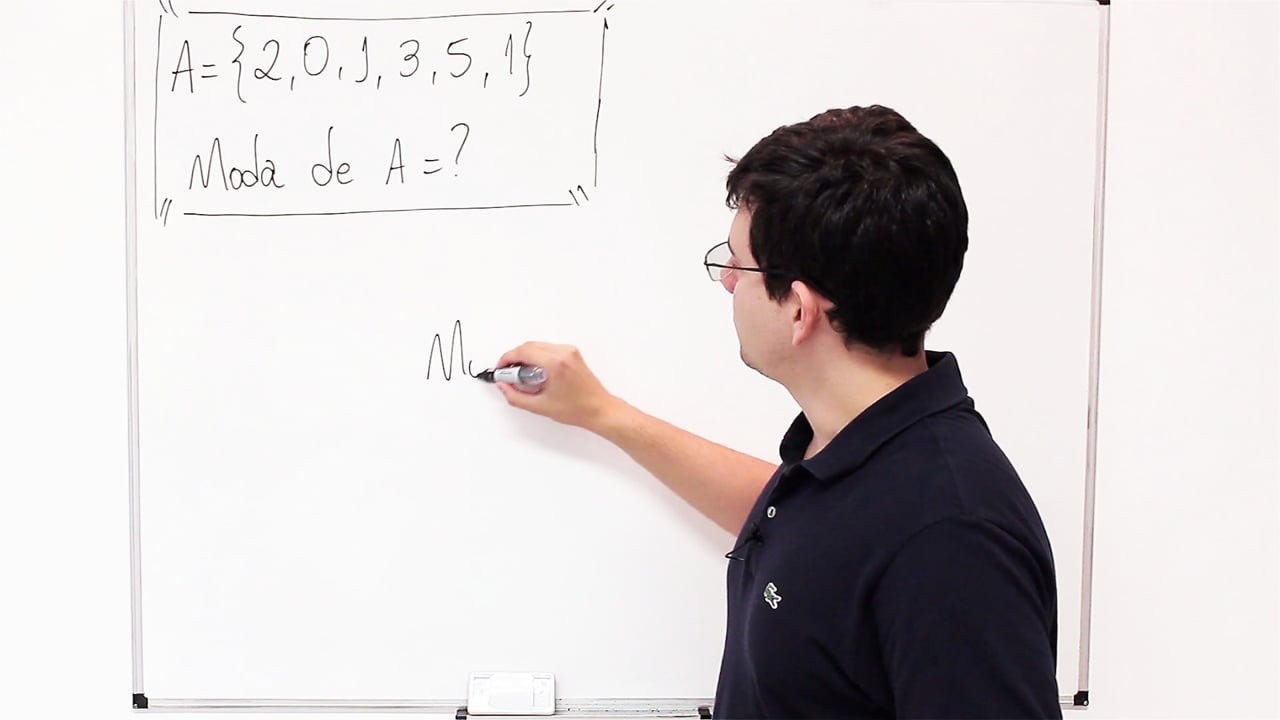 A={2,0,1,3,5,1}
Moda de A=?
Mo